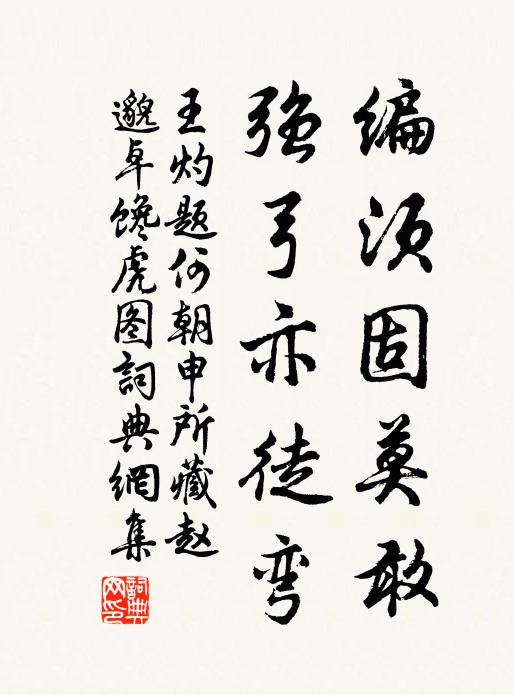 编须固莫敢
强弓亦徒弯
王灼题何朝申所藏赵
邈卓馋虎图詞典網集
詞典网印